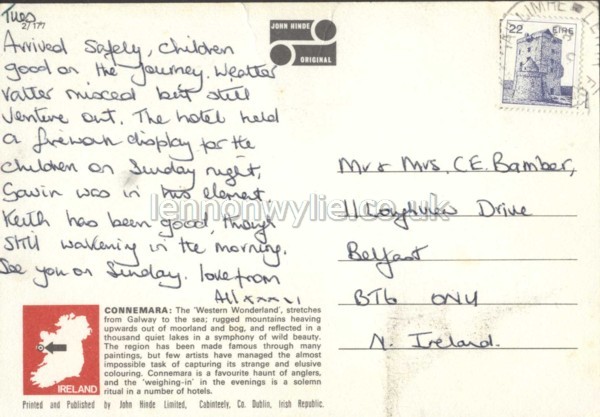 Tues
2/177
Arrived safely, Children
good on the journey. Weather
rather mixed but still
venture out. The hotel held
a firework display for the
children on Sunday night,
Gavin was in his element.
Keith has been good, though
still wakening in the morning.
See you on Sunday. love from
All xxxx
JOHN HINDE
ORIGINAL
22 EIRE
Mr & Mrs. C.E. Bamber,
11 Loughview Drive
Belfast
BT6 0NU
N. Ireland.
lennonwylie.co.uk
IRELAND
CONNEMARA: The 'Western Wonderland', stretches
from Galway to the sea; rugged mountains heaving
upwards out of moorland and bog, and reflected in a
thousand quiet lakes in a symphony of wild beauty.
The region has been made famous through many
paintings, but few artists have managed the almost
impossible task of capturing its strange and elusive
colouring. Connemara is a favourite haunt of anglers,
and the 'weighing-in' in the evenings is a solemn
ritual in a number of hotels.
Printed and Published by John Hinde Limited, Cabinteely, Co. Dublin, Irish Republic.